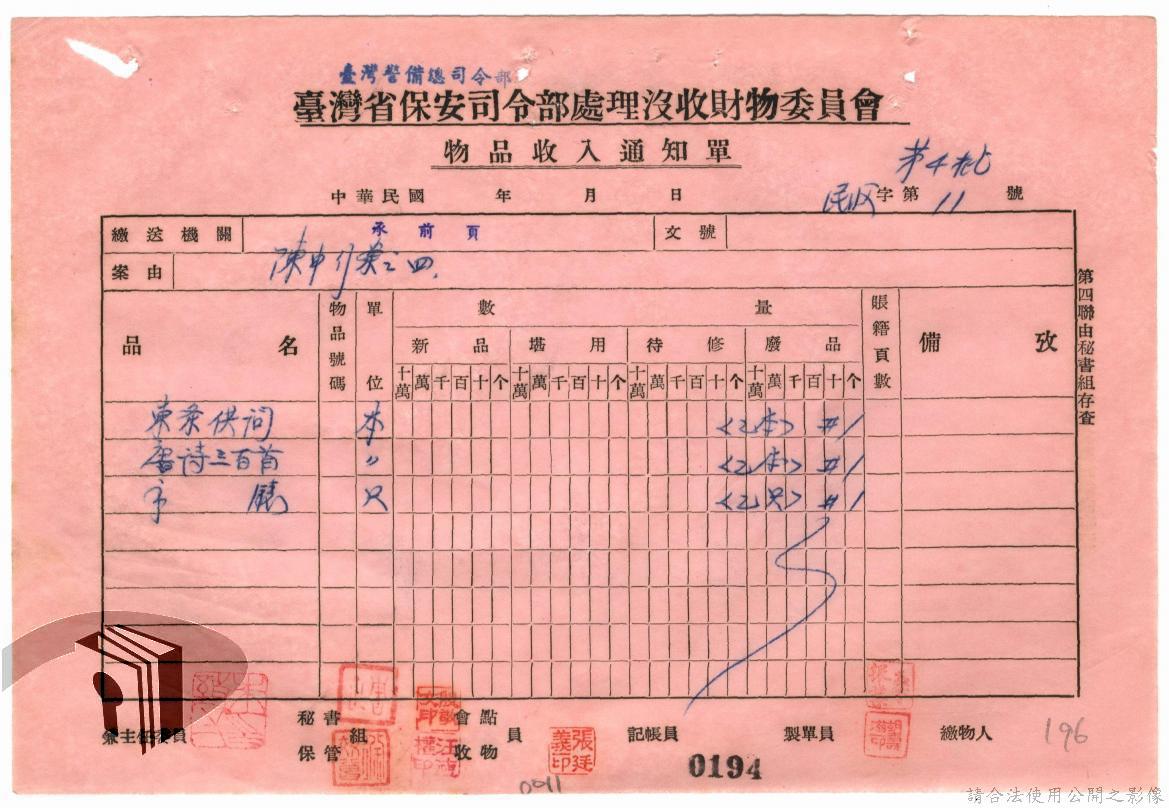 臺灣警備總司令部
臺灣省保安司令部處理沒收財物委員會
物品收入通知單
第4批
中華民國 年 月 日 字第11號
繳送機關 承前頁 文號
案由
品名 物品號碼 單位 數量 賬籍頁數 備攷
新品 堪用 待修 廢品
十萬 萬 千 百 十 个 十萬 萬 千 百 十 个 十萬 萬 千 百 十 个 十萬 萬 千 百 十 个
本 <乙本> #1
唐诗三百首 〃 <乙本> #1
只 <乙只> #1
第四聯由秘書組存查
兼主任委員 秘書組 保管 會點 收物 員 記帳員 製單員 繳物人
張廷義印
0194
0011
196
請合法使用公開之影像